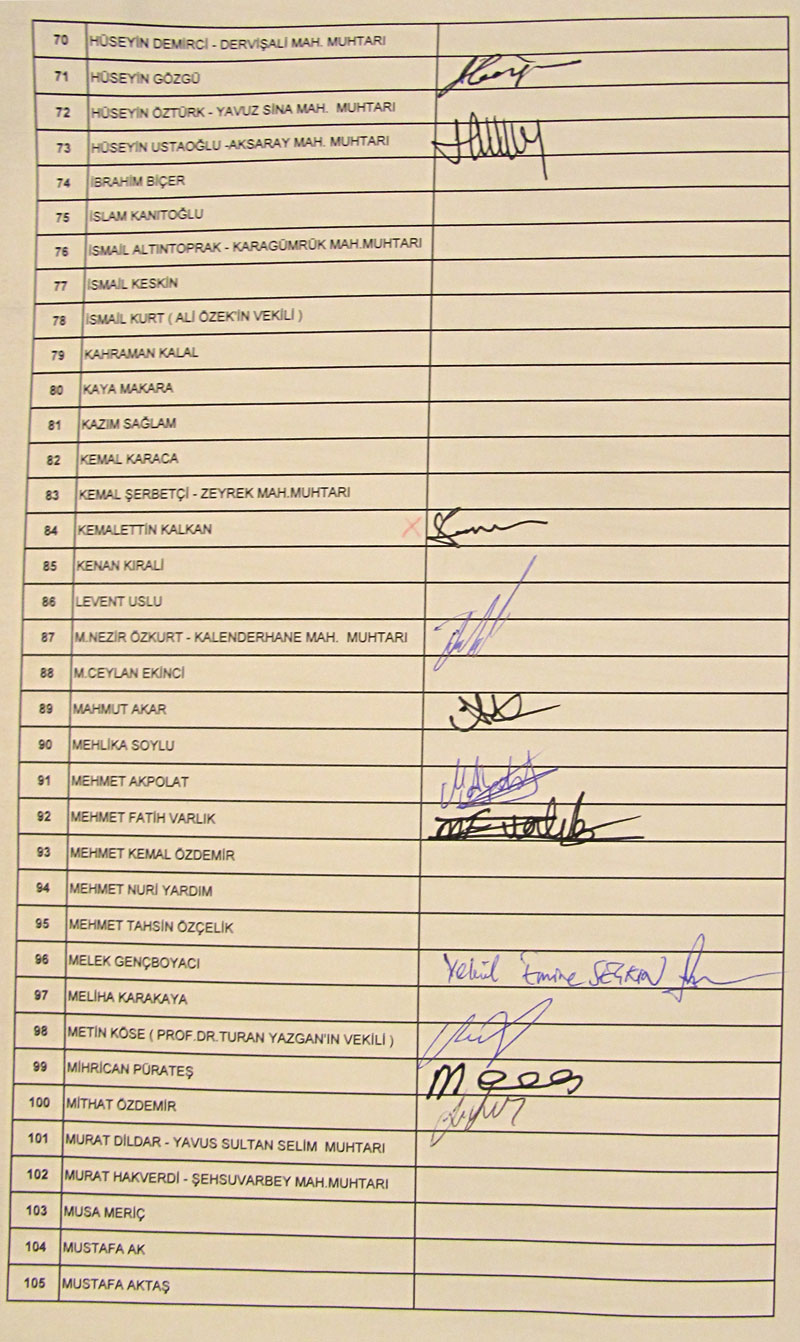 70 HÜSEYİN DEMİRCİ - DERVİŞALİ MAH. MUHTARI
71 HÜSEYİN GÖZGÜ
72 HÜSEYİN ÖZTÜRK - YAVUZ SİNA MAH. MUHTARI
73 HÜSEYİN USTAOĞLU -AKSARAY MAH. MUHTARI
74 İBRAHİM BİÇER
75 İSLAM KANITOĞLU
76 İSMAİL ALTINTOPRAK - KARAGÜMRÜK MAH.MUHTARI
77 İSMAİL KESKİN
78 İSMAİL KURT ( ALİ ÖZEK'İN VEKİLİ )
79 KAHRAMAN KALAL
80 KAYA MAKARA
81 KAZIM SAĞLAM
82 KEMAL KARACA
83 KEMAL ŞERBETÇİ - ZEYREK MAH.MUHTARI
84 KEMALETTİN KALKAN X
85 KENAN KIRALİ
86 LEVENT USLU
87 M.NEZİR ÖZKURT - KALENDERHANE MAH. MUHTARI
88 M.CEYLAN EKİNCİ
89 MAHMUT AKAR
90 MEHLİKA SOYLU
91 MEHMET AKPOLAT
92 MEHMET FATİH VARLIK MF Varlık
93 MEHMET KEMAL ÖZDEMİR
94 MEHMET NURİ YARDIM
95 MEHMET TAHSİN ÖZÇELİK
96 MELEK GENÇBOYACI Vekil Emine
97 MELİHA KARAKAYA
98 METİN KÖSE ( PROF.DR.TURAN YAZGAN'IN VEKİLİ )
99 MİHRİCAN PÜRATEŞ
100 MİTHAT ÖZDEMİR
101 MURAT DİLDAR - YAVUS SULTAN SELİM MUHTARI
102 MURAT HAKVERDİ - ŞEHSUVARBEY MAH.MUHTARI
103 MUSA MERİÇ
104 MUSTAFA AK
105 MUSTAFA AKTAŞ